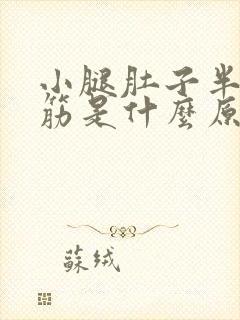 小腿肚子半
筋是什麼原
蘇绒